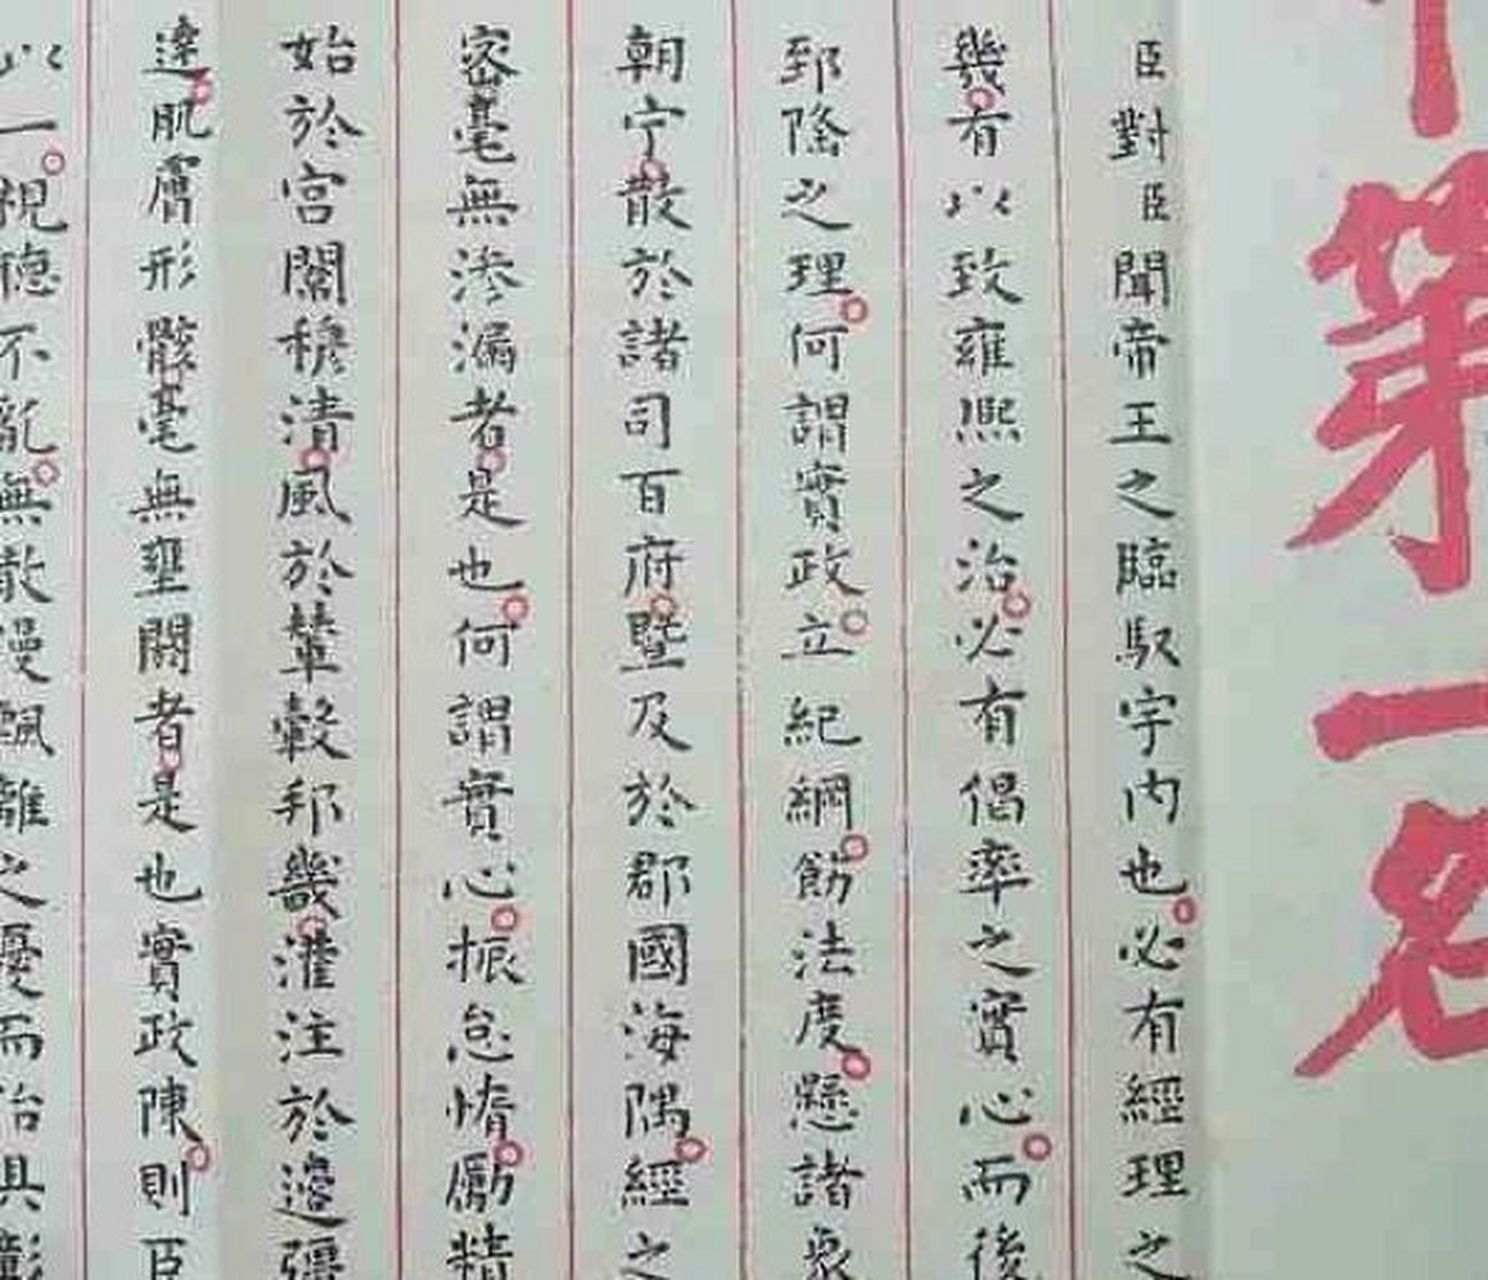 第一名
臣對臣聞帝王之臨馭宇内也必有經理之
幾有以致雍熈之治必有倡率之實心而後
郅隆之理何謂實政立紀綱飭法度懸諸象
朝宁散於諸司百府暨及於郡國海隅經之
宻毫無滲漏者是也何謂實心振怠惰勵精
始於宫闈穆清風於輦轂邦畿灌注於邊疆
達肌膚形骸毫無壅閼者是也實政陳則臣
以一視聽不亂無散漫飄離之憂而治具彰